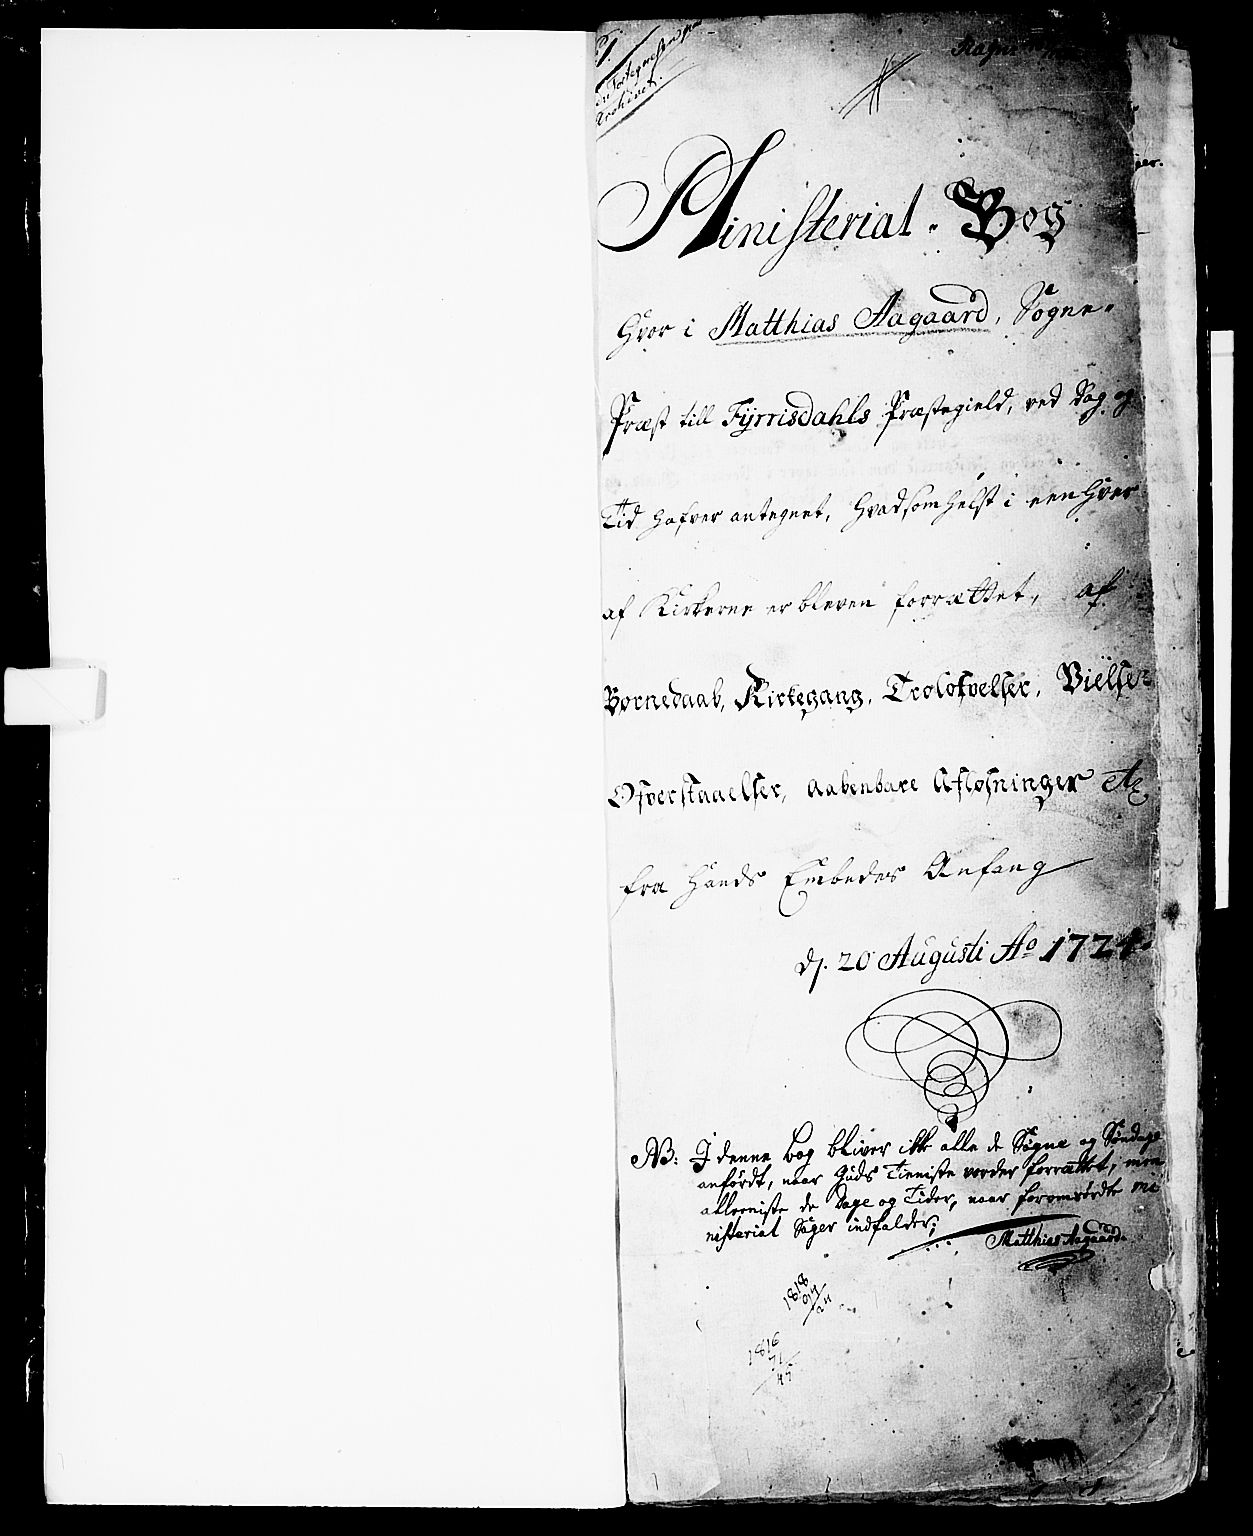 Ministerial-Bog
Hvor i Matthias Aagaard, Sogne-
Præst till Fÿrrisdahls Præstegield, ved Dag og
Tid hafver antegnet, hvadsomhelst i een hver
af Kirkerne er bleven forrættet, af
Børnedaab, Kirkegang, Trolofvelser, Vielser
Ofverstaaelser, aabenbare Afløsninger &c
fra Hands Embedes Anfang
d. 20 Augusti Ao 1724
NB: I denne bog bliver ikke alle de Søgne og Søndage
anfördt, naar Guds Tieniste vorder forrættet, men
alleeniste de Dage og Tider, naar foromrördte mi
nisterial Sager indfalder;
Matthias Aagaard.
1818
1816
71
45